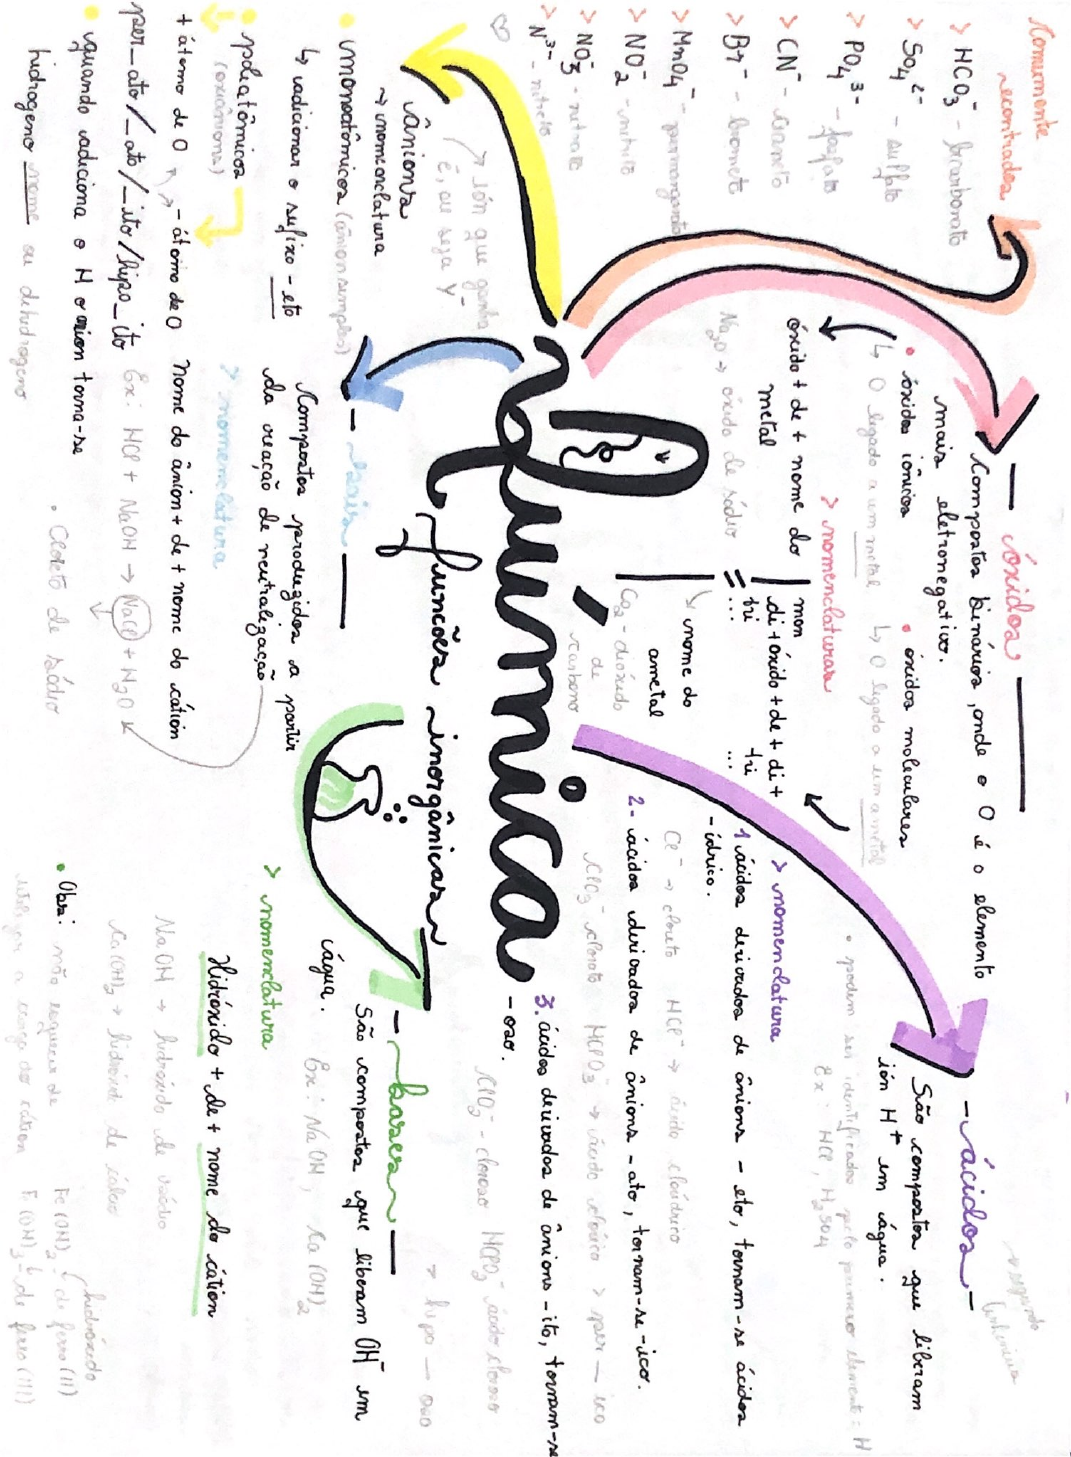 Química
funções inorgânicas
Comumente
encontrados
> HCO3⁻ - bicarbonato
> SO4²⁻ - sulfato
> PO4³⁻ - fosfato
> CN⁻ - cianeto
> Br⁻ - brometo
> MnO4⁻ - permanganato
> NO2⁻ - nitrito
> NO3⁻ - nitrato
> N³⁻ - nitreto
ânions
→ íon que ganha
é, ou seja Y⁻
→ nomenclatura
• monoatômicos (ânion simples)
↳ adicionar o sufixo - eto
• poliatômicos
(oxiânions)
+ átomo de O
- átomo de O
per_ato/_ato/_ito/hipo_ito
• quando adiciona o H o ânion torna-se
hidrogeno nome ou dihidrogeno
- sais -
Compostos produzidos a partir
da reação de neutralização
> nomenclatura
nome do ânion + de + nome do cátion
Ex: HCl + NaOH → NaCl + H2O
• Cloreto de sódio
- óxidos -
Compostos binários, onde o O é o elemento
mais eletronegativo.
• óxidos iônicos
↳ O ligado a um metal
• óxidos moleculares
↳ O ligado a um ametal
> nomenclaturas
óxido + de + nome do
metal
Na2O → óxido de sódio
mon
di + óxido + de + di +
tri
...
tri
...
nome do
ametal
CO2 - dióxido
de
carbono
- ácidos -
São compostos que liberam
íon H⁺ em água.
• podem ser identificados pelo primeiro elemento = H
Ex: HCl, H2SO4
> nomenclatura
1. ácidos derivados de ânions - eto, tornam-se ácidos
- ídrico.
Cl⁻ → cloreto HCl → ácido clorídrico
2- ácidos derivados de ânions - ato, tornam-se -ico.
ClO3⁻ clorato HClO3 → ácido clórico > per — ico
3. ácidos derivados de ânions -ito, tornam-se
- oso.
HClO2⁻ ácido cloroso
→ hipo — oso
- bases -
São compostos que liberam OH⁻ em
água.
Ex: NaOH, Ca(OH)2
> nomenclatura
Hidróxido + de + nome do cátion
NaOH → hidróxido de sódio
Ca(OH)2 → hidróxido de cálcio
• Obs: não esqueça de
a carga do cátion
Fe(OH)2 - hidróxido
de ferro (II)
F(OH)3 - de ferro (III)